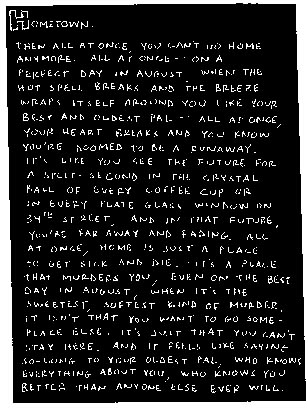 HOMETOWN.
THEN ALL AT ONCE, YOU CAN'T GO HOME
ANYMORE. ALL AT ONCE -- ON A
PERFECT DAY IN AUGUST, WHEN THE
HOT SPELL BREAKS AND THE BREEZE
WRAPS ITSELF AROUND YOU LIKE YOUR
BEST AND OLDEST PAL -- ALL AT ONCE,
YOUR HEART BREAKS AND YOU KNOW
YOU'RE DOOMED TO BE A RUNAWAY.
IT'S LIKE YOU SEE THE FUTURE FOR
A SPLIT-SECOND IN THE CRYSTAL
BALL OF EVERY COFFEE CUP OR
IN EVERY PLATE GLASS WINDOW ON
34TH STREET, AND IN THAT FUTURE,
YOU'RE FAR AWAY AND FADING. ALL
AT ONCE, HOME IS JUST A PLACE
TO GET SICK AND DIE. IT'S A PLACE
THAT MURDERS YOU, EVEN ON THE BEST
DAY IN AUGUST, WHEN IT'S THE
SWEETEST, SOFTEST KIND OF MURDER.
IT ISN'T THAT YOU WANT TO GO SOME-
PLACE ELSE. IT'S JUST THAT YOU CAN'T
STAY HERE. AND IT FEELS LIKE SAYING
SO-LONG TO YOUR OLDEST PAL, WHO KNOWS
EVERYTHING ABOUT YOU, WHO KNOWS YOU
BETTER THAN ANYONE ELSE EVER WILL.